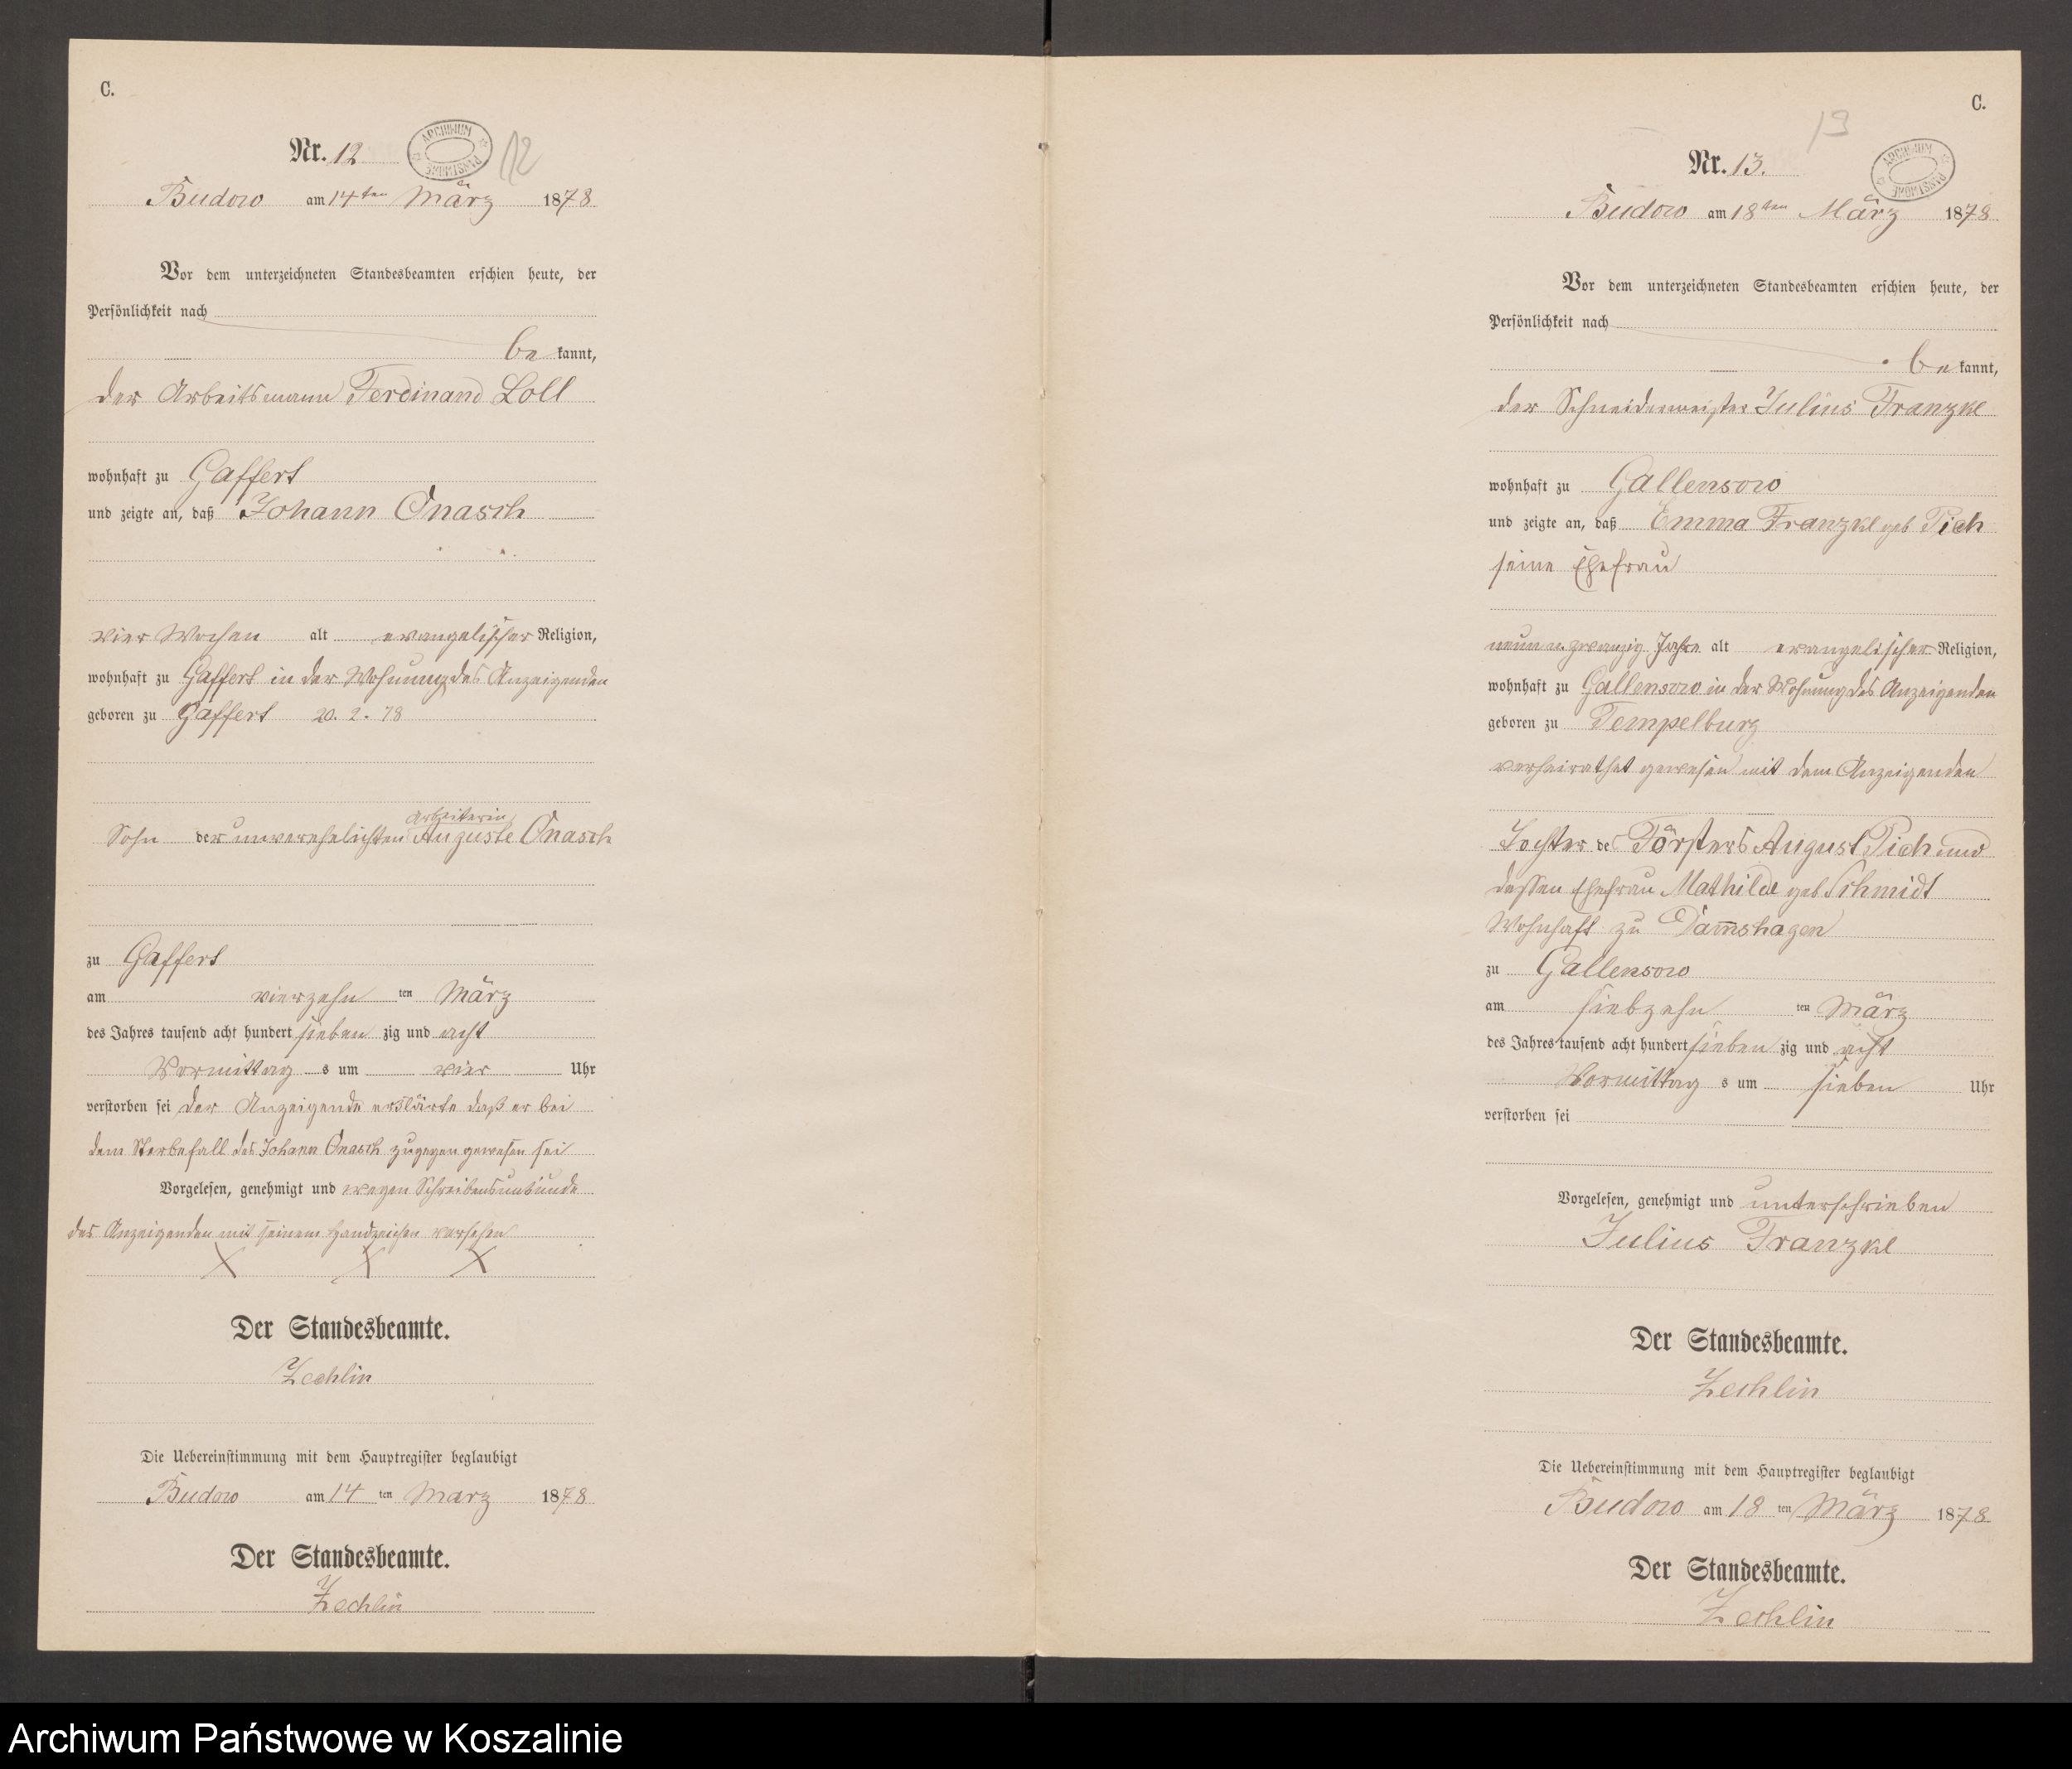 C.
Nr. 12
ARCHIWUM PAŃSTWOWE
12
Budow am 14ten März 1878
Vor dem unterzeichneten Standesbeamten erschien heute, der
Persönlichkeit nach
be kannt,
der Arbeitsmann Ferdinand Loll
wohnhaft zu Gaffert
und zeigte an, daß Johann Onasch
vier Wochen alt evangelischer Religion,
wohnhaft zu Gaffert in der Wohnung des Anzeigenden
geboren zu Gaffert 20. 2. 78
Arbeiterin
Sohn der unverehelichten Auguste Onasch
zu Gaffert
am vierzehn ten März
des Jahres tausend acht hundert sieben zig und acht
Vormittag s um vier Uhr
verstorben sei der Anzeigende erklärte daß er bei
dem Sterbefall des Johann Onasch zugegen gewesen sei
Vorgelesen, genehmigt und wegen Schreibensunkunde
des Anzeigenden mit seinem Handzeichen versehen
X X X
Der Standesbeamte.
Zechlin
Die Uebereinstimmung mit dem Hauptregister beglaubigt
Budow am 14 ten Marz 1878
Der Standesbeamte.
Zechlin
C.
13
Nr. 13.
ARCHIWUM PAŃSTWOWE
Budow am 18ten März 1878
Vor dem unterzeichneten Standesbeamten erschien heute, der
Persönlichkeit nach
be kannt,
der Schneidermeister Julius Franzke
wohnhaft zu Gallensow
und zeigte an, daß Emma Franzke geb Pich
seine Ehefrau
neun u. zwanzig Jahre alt evangelischer Religion,
wohnhaft zu Gallensow in der Wohnung des Anzeigenden
geboren zu Tempelburg
verheirathet gewesen mit dem Anzeigenden
Tochter des Försters August Pich und
dessen Ehefrau Mathilde geb Schmidt
Wohnhaft zu Dam̅shagen
zu Gallensow
am siebzehn ten März
des Jahres tausend acht hundert sieben zig und acht
Vormittag s um sieben Uhr
verstorben sei
Vorgelesen, genehmigt und unterschrieben
Julius Franzke
Der Standesbeamte.
Zechlin
Die Uebereinstimmung mit dem Hauptregister beglaubigt
Budow am 18 ten März 1878
Der Standesbeamte.
Zechlin
Archiwum Państwowe w Koszalinie